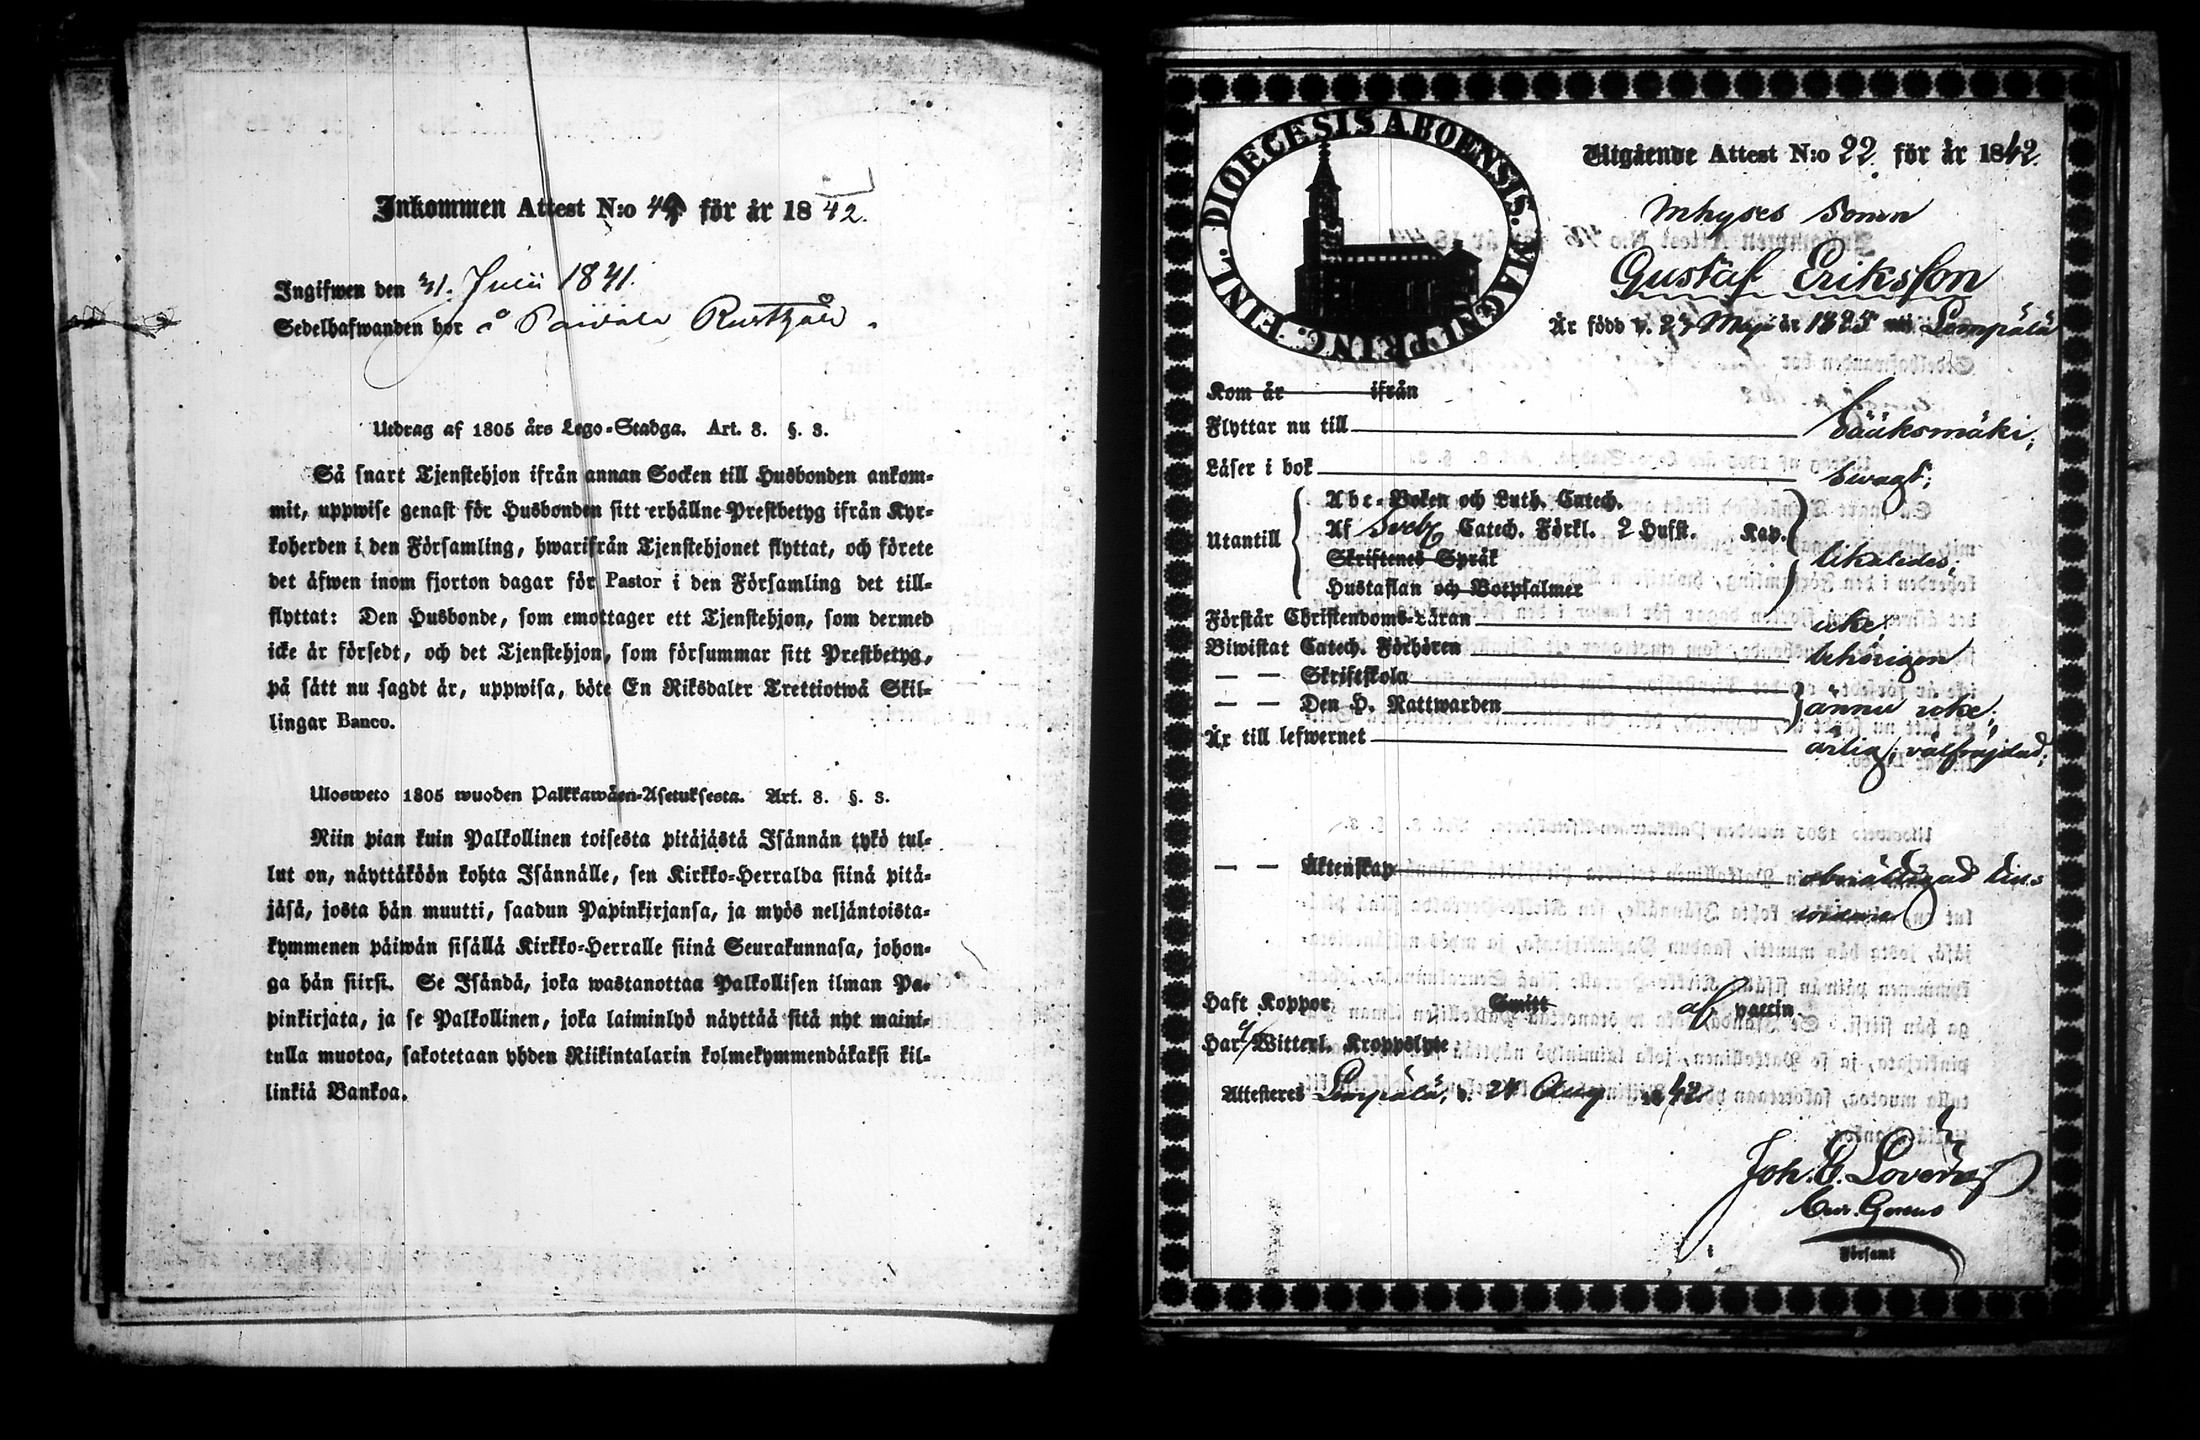 Inkommen Attest N:o 44 för år 1842.
Ingifwen den 31. Julii 1841.
Sedelhafwanden bor å Päivälä Rusthåll.
Utdrag af 1805 års Lego-Stadga. Art. 8. §. 3.
Så snart Tjenstehjon ifrån annan Socken till Husbonden ankom-
mit, uppwise genast för Husbonden sitt erhållne Prestbetyg ifrån Kyr-
koherden i den Församling, hwarifrån Tjenstehjonet flyttat, och förete
det äfwen inom fjorton dagar för Pastor i den Församling det till-
flyttat: Den Husbonde, som emottager ett Tjenstehjon, som dermed
icke är försedt, och det Tjenstehjon, som försummar sitt Prestbetyg,
på sätt nu sagdt är, uppwisa, böte En Riksdaler Trettiotwå Skil-
lingar Banco.
Ulosweto 1805 wuoden Palkkawäen-Asetuksesta. Art. 8. §. 3.
Niin pian kuin Palkollinen toisesta pitäjästä Isännän tykö tul-
lut on, näyttäköön kohta Isännälle, sen Kirkko-Herralda siinä pitä-
jäsä, josta hän muutti, saadun Papinkirjansa, ja myös neljäntoista-
kymmenen päiwän sisällä Kirkko-Herralle siinä Seurakunnasa, johon-
ga hän siirsi. Se Isändä, joka wastanottaa Palkollisen ilman Pa-
pinkirjata, ja se Palkollinen, joka laiminlyö näyttää sitä nyt maini-
tulla muotoa, sakotetaan yhden Riikintalarin kolmekymmendäkaksi kil-
linkiä Bankoa.
DIOECESIS ABOENSIS. MAGNI PRINC. FINL.
Utgående Attest N:o 22. för år 1842.
Inhyses Sonen
Gustaf Eriksson
Är född d. 23 Maj år 1825 uti Lempälä
Kom år ifrån
Flyttar nu till Sääksmäki;
Läser i bok svagt;
Utantill
Abc-Boken och Luth. Catech.
Af Sveb. Catech. Förkl. 2 Hufst. Kap.
Skriftenes Språk likaledes;
Hustaflan och Botpsalmer
Förstår Christendoms-Läran icke;
Biwistat Catech. Förhören behörigen
— — Skriftskola
— — Den H. Nattwarden ännu icke;
Är till lefwernet ärlig, välfrejdad;
— — Äktenskap
Haft Koppor Smitt af vaccin.
Har ej Witterl. Kroppslyte
Attesteres Lempälä, d. 24 Aug 1842
Joh. E.
Församl